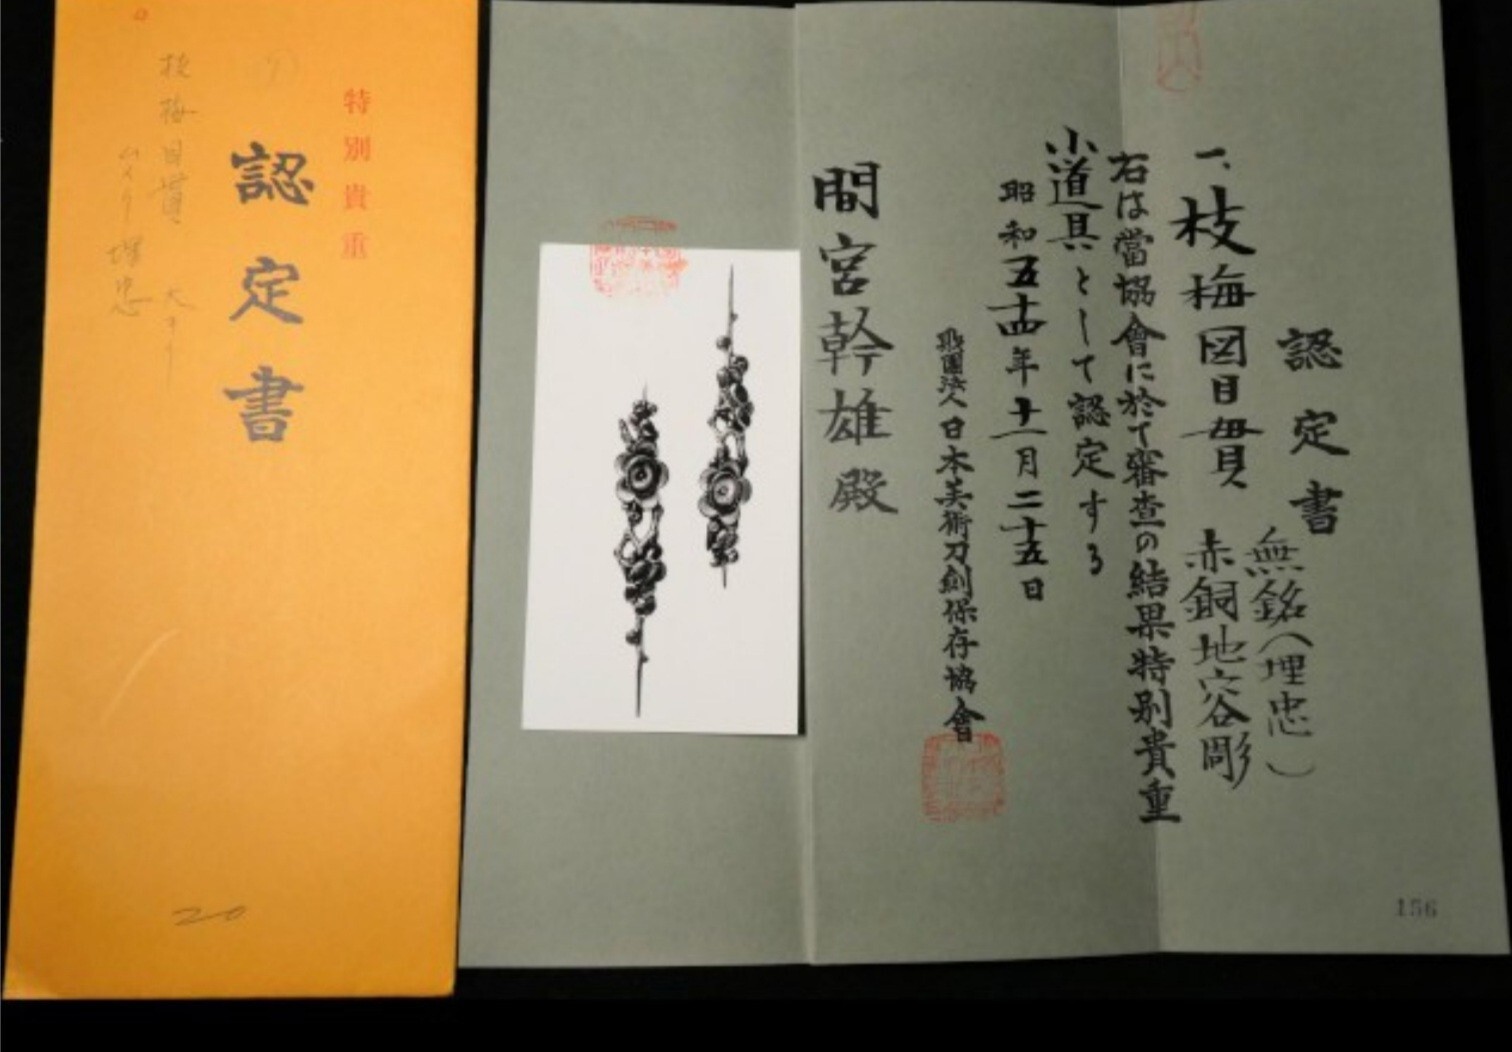 認定書
一、枝梅図目貫
無銘(埋忠)
赤銅地容彫
右は當協會に於て審査の結果特別貴重
小道具として認定する
昭和五十四年十一月二十五日
財團法人日本美術刀劍保存協會
間宮幹雄殿
156
特別貴重
認定書
枝梅目貫
埋忠
20